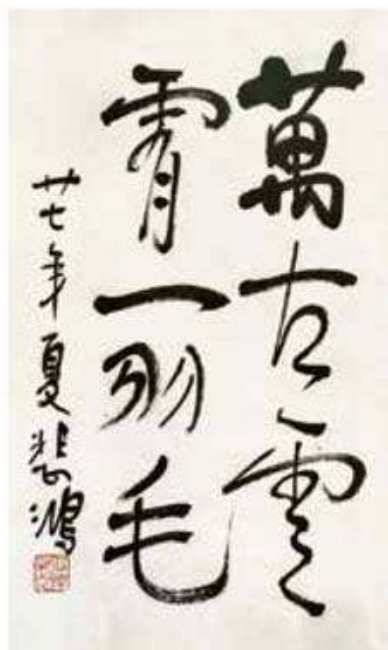 萬古雲
霄一羽毛
廿七年夏悲鴻